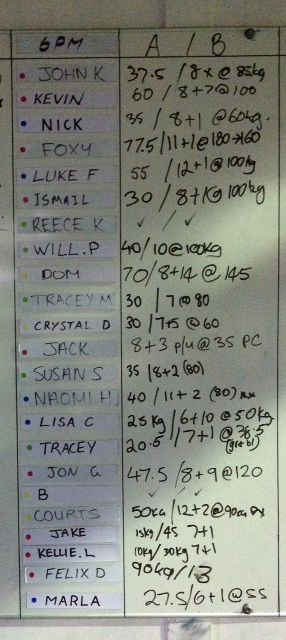 6PM A / B
JOHN K 37.5 / 8x @ 85kg
KEVIN 60 / 8+7@100
NICK 35 / 8+1 @60kg.
FOXY 77.5/11+1@180→160
LUKE F 55 /12+1@100kg
ISMAIL 30 / 8+1@100kg
REECE K ✓ / ✓
WILL.P 40/10@100kg
DOM 70/8+14 @ 145
TRACEY M 30 / 7@80
CRYSTAL D 30 /7+5 @60
JACK 8+3 p/u@35 PC
SUSAN S 35 /8+2 (80)
NAOMI H 40 /11+2 (80) Rx
LISA C 25kg /6+10 @50kg
TRACEY 20.5 /7+1 @ 38.5
JON G 47.5 /8+9@120
B ✓ ✓
COURTS 50kg /12+2@90kg Rx
JAKE 15kg/45 7+1
KELLIE.L 10kg/30kg 7+1
FELIX D 90kg/13
MARLA 27.5/6+1@55